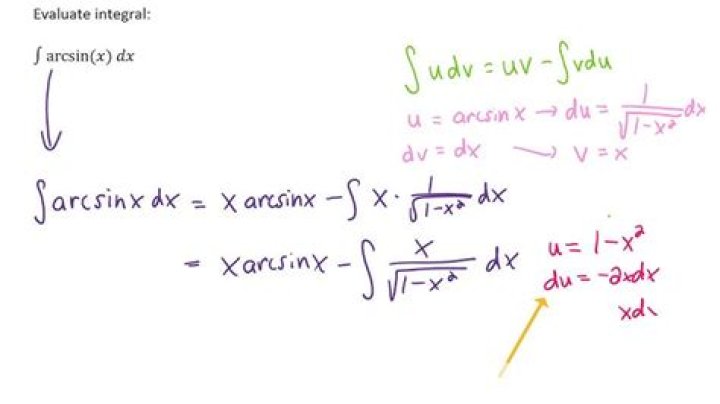 Evaluate integral:
∫ arcsin(x) dx
∫udv = uv - ∫vdu
u = arcsinx → du = 1/√(1-x²) dx
dv = dx → v = x
∫arcsinx dx = x arcsinx - ∫ x · 1/√(1-x²) dx
= xarcsinx - ∫ x/√(1-x²) dx
u = 1-x²
du = -2xdx
xd